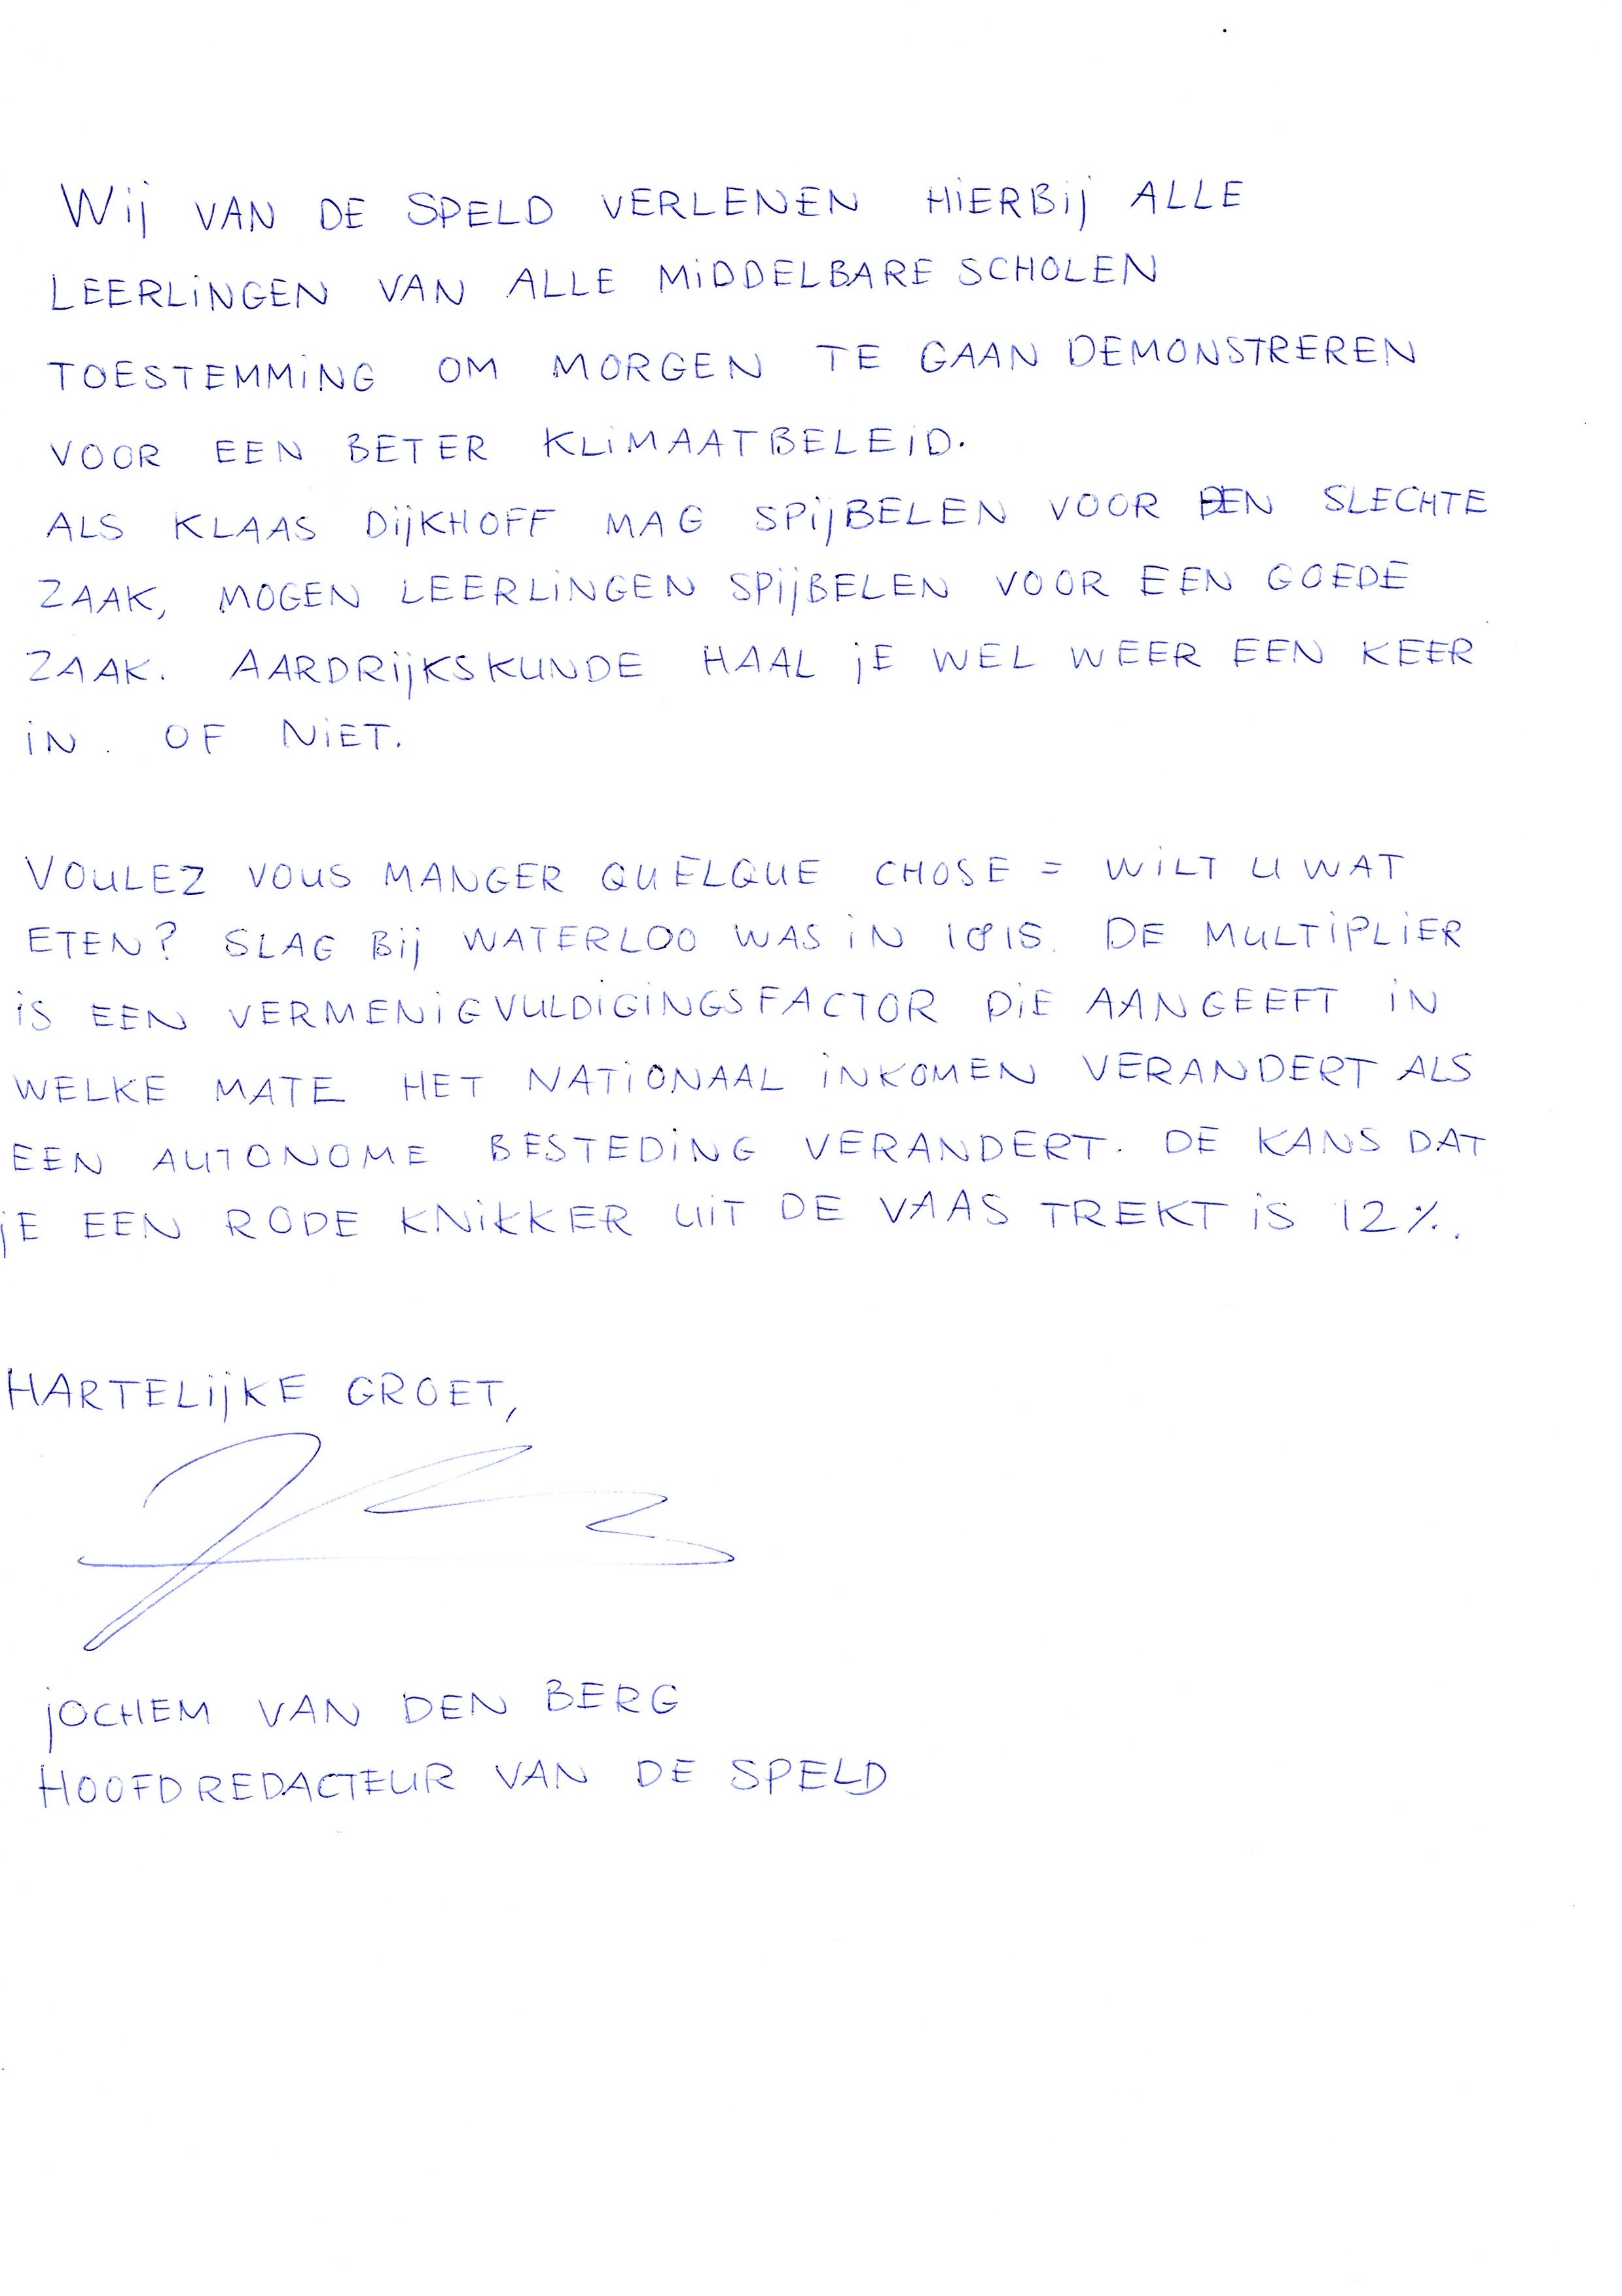 Wij VAN DE SPELD VERLENEN HiERBij ALLE
LEERLiNGEN VAN ALLE MiDDELBARE SCHOLEN
TOESTEMMiNG OM MORGEN TE GAAN DEMONSTREREN
VOOR EEN BETER KLiMAATBELEiD.
ALS KLAAS DijKHOFF MAG SPijBELEN VOOR EEN SLECHTE
ZAAK, MOGEN LEERLiNGEN SPijBELEN VOOR EEN GOEDE
ZAAK. AARDRijKSKUNDE HAAL jE WEL WEER EEN KEER
iN. OF NiET.
VOULEZ VOUS MANGER QUELQUE CHOSE = WiLT U WAT
ETEN? SLAG Bij WATERLOO WAS iN 1815. DE MULTiPLiER
iS EEN VERMENiGVULDiGiNGSFACTOR DiE AANGEEFT iN
WELKE MATE HET NATiONAAL iNKOMEN VERANDERT ALS
EEN AUTONOME BESTEDiNG VERANDERT. DE KANS DAT
jE EEN RODE KNiKKER UiT DE VAAS TREKT iS 12%.
HARTELijKE GROET,
jOCHEM VAN DEN BERG
HOOFDREDACTEUR VAN DE SPELD